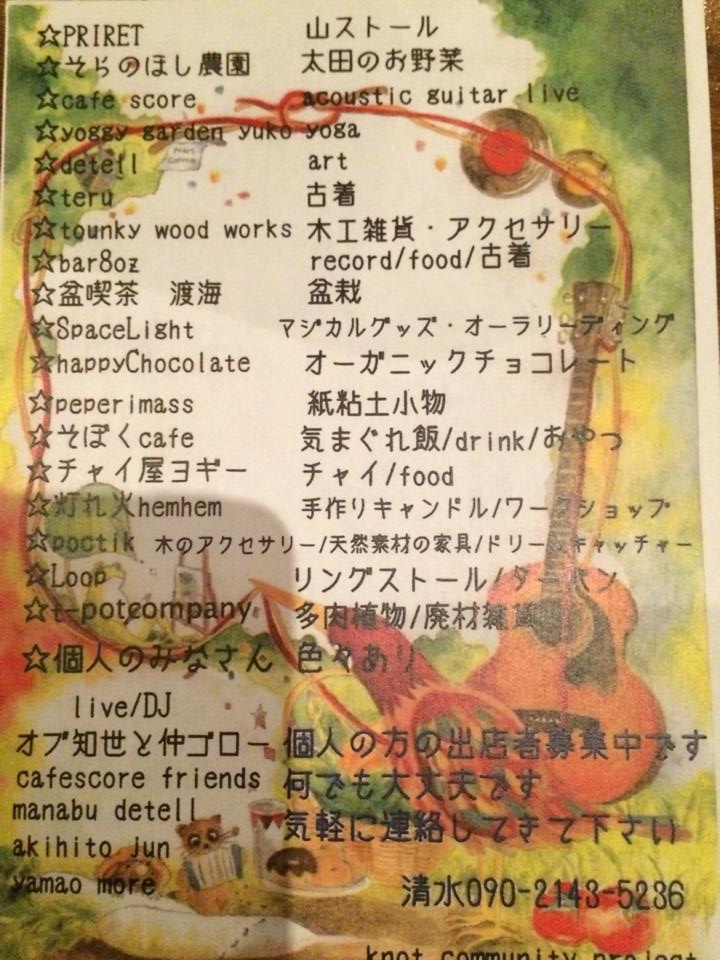 ☆PRIRET 山ストール
☆そらのほし農園 太田のお野菜
☆cafe score acoustic guitar live
☆yoggy garden yuko yoga
☆detell art
☆teru 古着
☆tounky wood works 木工雑貨・アクセサリー
☆bar8oz record/food/古着
☆盆喫茶 渡海 盆栽
☆SpaceLight マジカルグッズ・オーラリーディング
☆happyChocolate オーガニックチョコレート
☆peperimass 紙粘土小物
☆そぼくcafe 気まぐれ飯/drink/おやつ
☆チャイ屋ヨギー チャイ/food
☆灯れ火hemhem 手作りキャンドル/ワークショップ
☆poctik 木のアクセサリー/天然素材の家具/ドリームキャッチャー
☆Loop リングストール/ターバン
☆t-potcompany 多肉植物/廃材雑貨
☆個人のみなさん 色々あり
live/DJ
オブ知世と仲ゴロー 個人の方の出店者募集中です
cafescore friends 何でも大丈夫です
manabu detell 気軽に連絡してきて下さい
akihito jun
yamao more 清水090-2143-5236
knot community project